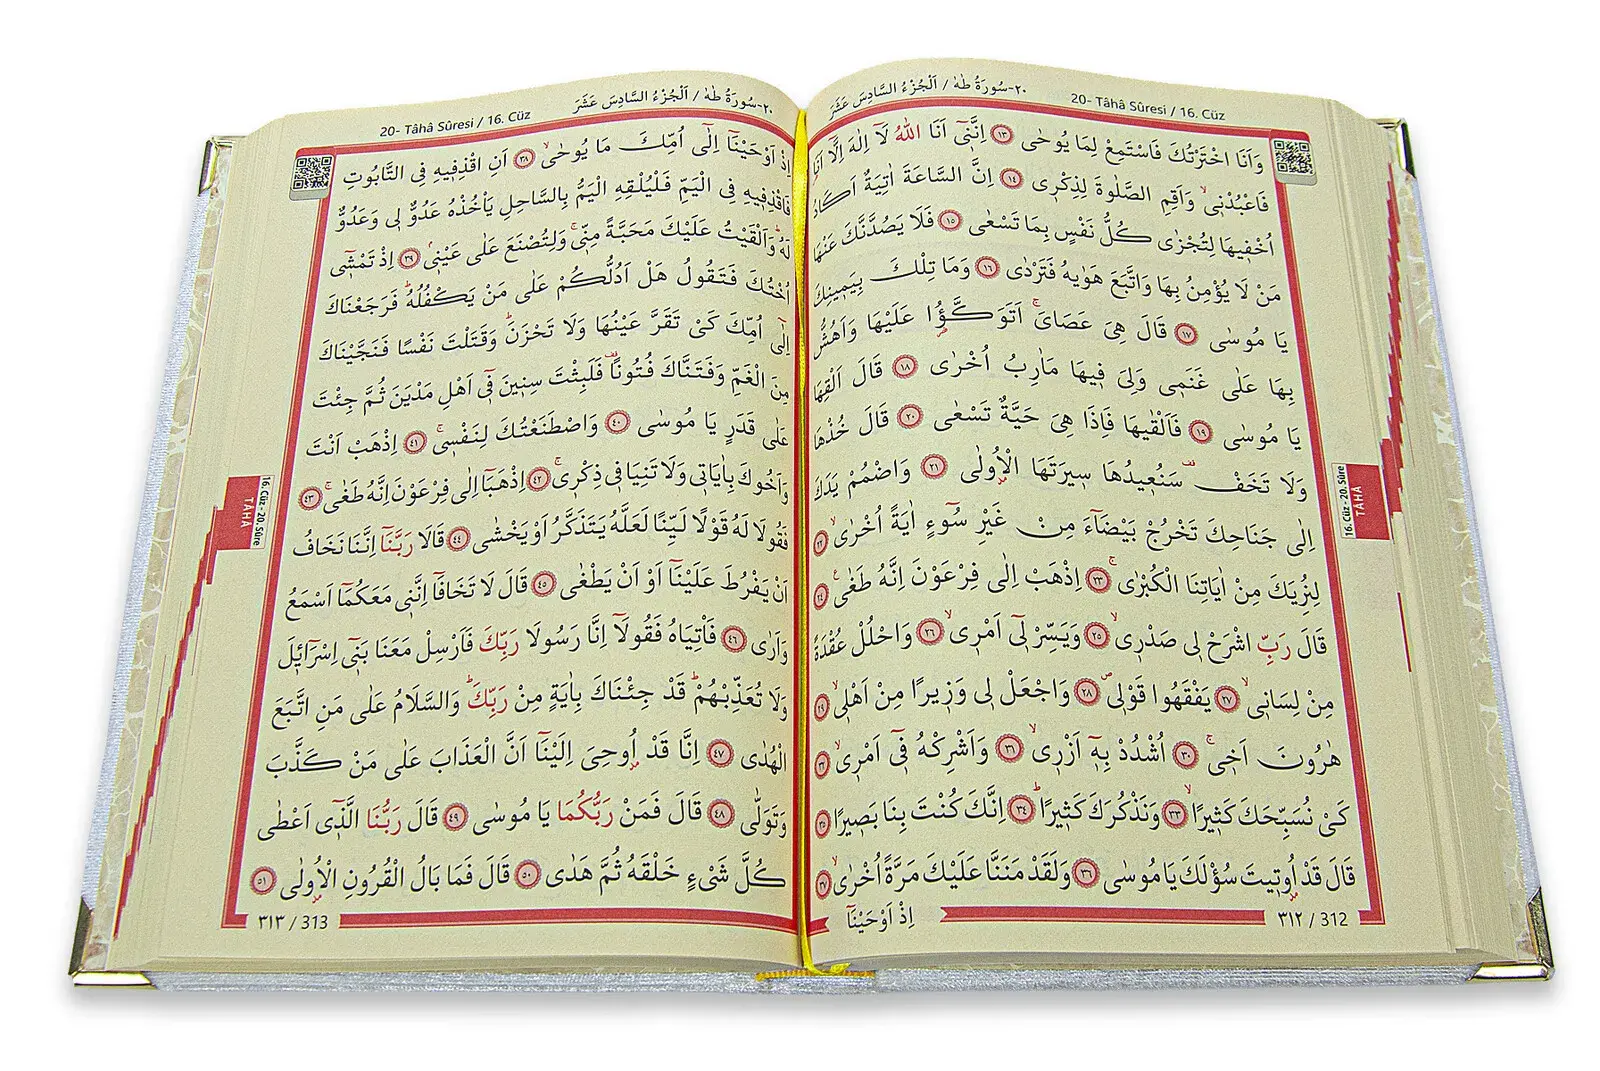 20- Tâhâ Sûresi / 16. Cüz
٢٠-سُورَةُ طٰهٰ / اَلْجُزْءُ السَّادِسَ عَشَرَ
وَاَنَا اخْتَرْتُكَ فَاسْتَمِعْ لِمَا يُوحٰى ﴿١٣﴾ اِنَّنٖٓي اَنَا اللّٰهُ لَٓا اِلٰهَ اِلَّٓا اَنَا۬
فَاعْبُدْنٖيۙ وَاَقِمِ الصَّلٰوةَ لِذِكْرٖي ﴿١٤﴾ اِنَّ السَّاعَةَ اٰتِيَةٌ اَكَادُ
اُخْفٖيهَا لِتُجْزٰى كُلُّ نَفْسٍ بِمَا تَسْعٰى ﴿١٥﴾ فَلَا يَصُدَّنَّكَ عَنْهَا
مَنْ لَا يُؤْمِنُ بِهَا وَاتَّبَعَ هَوٰيهُ فَتَرْدٰى ﴿١٦﴾ وَمَا تِلْكَ بِيَمٖينِكَ
يَا مُوسٰى ﴿١٧﴾ قَالَ هِيَ عَصَايَۚ اَتَوَكَّؤُ۬ا عَلَيْهَا وَاَهُشُّ
بِهَا عَلٰى غَنَمٖي وَلِيَ فٖيهَا مَاٰرِبُ اُخْرٰى ﴿١٨﴾ قَالَ اَلْقِهَا
يَا مُوسٰى ﴿١٩﴾ فَاَلْقٰيهَا فَاِذَا هِيَ حَيَّةٌ تَسْعٰى ﴿٢٠﴾ قَالَ خُذْهَا
وَلَا تَخَفْ۠ سَنُعٖيدُهَا سٖيرَتَهَا الْاُو۫لٰى ﴿٢١﴾ وَاضْمُمْ يَدَكَ
اِلٰى جَنَاحِكَ تَخْرُجْ بَيْضَٓاءَ مِنْ غَيْرِ سُٓوءٍ اٰيَةً اُخْرٰىۙ ﴿٢٢﴾
لِنُرِيَكَ مِنْ اٰيَاتِنَا الْكُبْرٰىۚ ﴿٢٣﴾ اِذْهَبْ اِلٰى فِرْعَوْنَ اِنَّهُ طَغٰى۟ ﴿٢٤﴾
قَالَ رَبِّ اشْرَحْ لٖي صَدْرٖيۙ ﴿٢٥﴾ وَيَسِّرْ لٖٓي اَمْرٖيۙ ﴿٢٦﴾ وَاحْلُلْ عُقْدَةً
مِنْ لِسَانٖيۙ ﴿٢٧﴾ يَفْقَهُوا قَوْلٖيۖ ﴿٢٨﴾ وَاجْعَلْ لٖي وَزٖيرًا مِنْ اَهْلٖيۙ ﴿٢٩﴾
هٰرُونَ اَخٖيۚ ﴿٣٠﴾ اُشْدُدْ بِهٖٓ اَزْرٖيۙ ﴿٣١﴾ وَاَشْرِكْهُ فٖٓي اَمْرٖيۙ ﴿٣٢﴾
كَيْ نُسَبِّحَكَ كَثٖيرًاۙ ﴿٣٣﴾ وَنَذْكُرَكَ كَثٖيرًاۜ ﴿٣٤﴾ اِنَّكَ كُنْتَ بِنَا بَصٖيرًا ﴿٣٥﴾
قَالَ قَدْ اُو۫تٖيتَ سُؤْلَكَ يَا مُوسٰى ﴿٣٦﴾ وَلَقَدْ مَنَنَّا عَلَيْكَ مَرَّةً اُخْرٰىۙ ﴿٣٧﴾
٣١٢ / 312
اِذْ اَوْحَيْنَٓا
16. Cüz - 20. Sûre
TÂHÂ
20- Tâhâ Sûresi / 16. Cüz
٢٠-سُورَةُ طٰهٰ / اَلْجُزْءُ السَّادِسَ عَشَرَ
اِذْ اَوْحَيْنَٓا اِلٰٓى اُمِّكَ مَا يُوحٰىۙ ﴿٣٨﴾ اَنِ اقْذِفٖيهِ فِي التَّابُوتِ
فَاقْذِفٖيهِ فِي الْيَمِّ فَلْيُلْقِهِ الْيَمُّ بِالسَّاحِلِ يَأْخُذْهُ عَدُوٌّ لٖي وَعَدُوٌّ
لَهُۜ وَاَلْقَيْتُ عَلَيْكَ مَحَبَّةً مِنّٖيۚ وَلِتُصْنَعَ عَلٰى عَيْنٖيۢ ﴿٣٩﴾ اِذْ تَمْشٖٓي
اُخْتُكَ فَتَقُولُ هَلْ اَدُلُّكُمْ عَلٰى مَنْ يَكْفُلُهُۜ فَرَجَعْنَاكَ
اِلٰٓى اُمِّكَ كَيْ تَقَرَّ عَيْنُهَا وَلَا تَحْزَنَۜ وَقَتَلْتَ نَفْسًا فَنَجَّيْنَاكَ
مِنَ الْغَمِّ وَفَتَنَّاكَ فُتُونًا۠ فَلَبِثْتَ سِنٖينَ فٖٓي اَهْلِ مَدْيَنَ ثُمَّ جِئْتَ
عَلٰى قَدَرٍ يَا مُوسٰى ﴿٤٠﴾ وَاصْطَنَعْتُكَ لِنَفْسٖيۚ ﴿٤١﴾ اِذْهَبْ اَنْتَ
وَاَخُوكَ بِاٰيَاتٖي وَلَا تَنِيَا فٖي ذِكْرٖيۚ ﴿٤٢﴾ اِذْهَبَٓا اِلٰى فِرْعَوْنَ اِنَّهُ طَغٰىۚ ﴿٤٣﴾
فَقُولَا لَهُ قَوْلًا لَيِّنًا لَعَلَّهُ يَتَذَكَّرُ اَوْ يَخْشٰى ﴿٤٤﴾ قَالَا رَبَّنَٓا اِنَّنَا نَخَافُ
اَنْ يَفْرُطَ عَلَيْنَٓا اَوْ اَنْ يَطْغٰى ﴿٤٥﴾ قَالَ لَا تَخَافَٓا اِنَّنٖي مَعَكُمَٓا اَسْمَعُ
وَاَرٰى ﴿٤٦﴾ فَأْتِيَاهُ فَقُولَٓا اِنَّا رَسُولَا رَبِّكَ فَاَرْسِلْ مَعَنَا بَنٖٓي اِسْرَٓائٖلَ
وَلَا تُعَذِّبْهُمْۜ قَدْ جِئْنَاكَ بِاٰيَةٍ مِنْ رَبِّكَۜ وَالسَّلَامُ عَلٰى مَنِ اتَّبَعَ
الْهُدٰى ﴿٤٧﴾ اِنَّا قَدْ اُو۫حِيَ اِلَيْنَٓا اَنَّ الْعَذَابَ عَلٰى مَنْ كَذَّبَ
وَتَوَلّٰى ﴿٤٨﴾ قَالَ فَمَنْ رَبُّكُمَا يَا مُوسٰى ﴿٤٩﴾ قَالَ رَبُّنَا الَّذٖٓي اَعْطٰى
كُلَّ شَيْءٍ خَلْقَهُ ثُمَّ هَدٰى ﴿٥٠﴾ قَالَ فَمَا بَالُ الْقُرُونِ الْاُو۫لٰى ﴿٥١﴾
٣١٣ / 313
16. Cüz - 20. Sûre
TÂHÂ